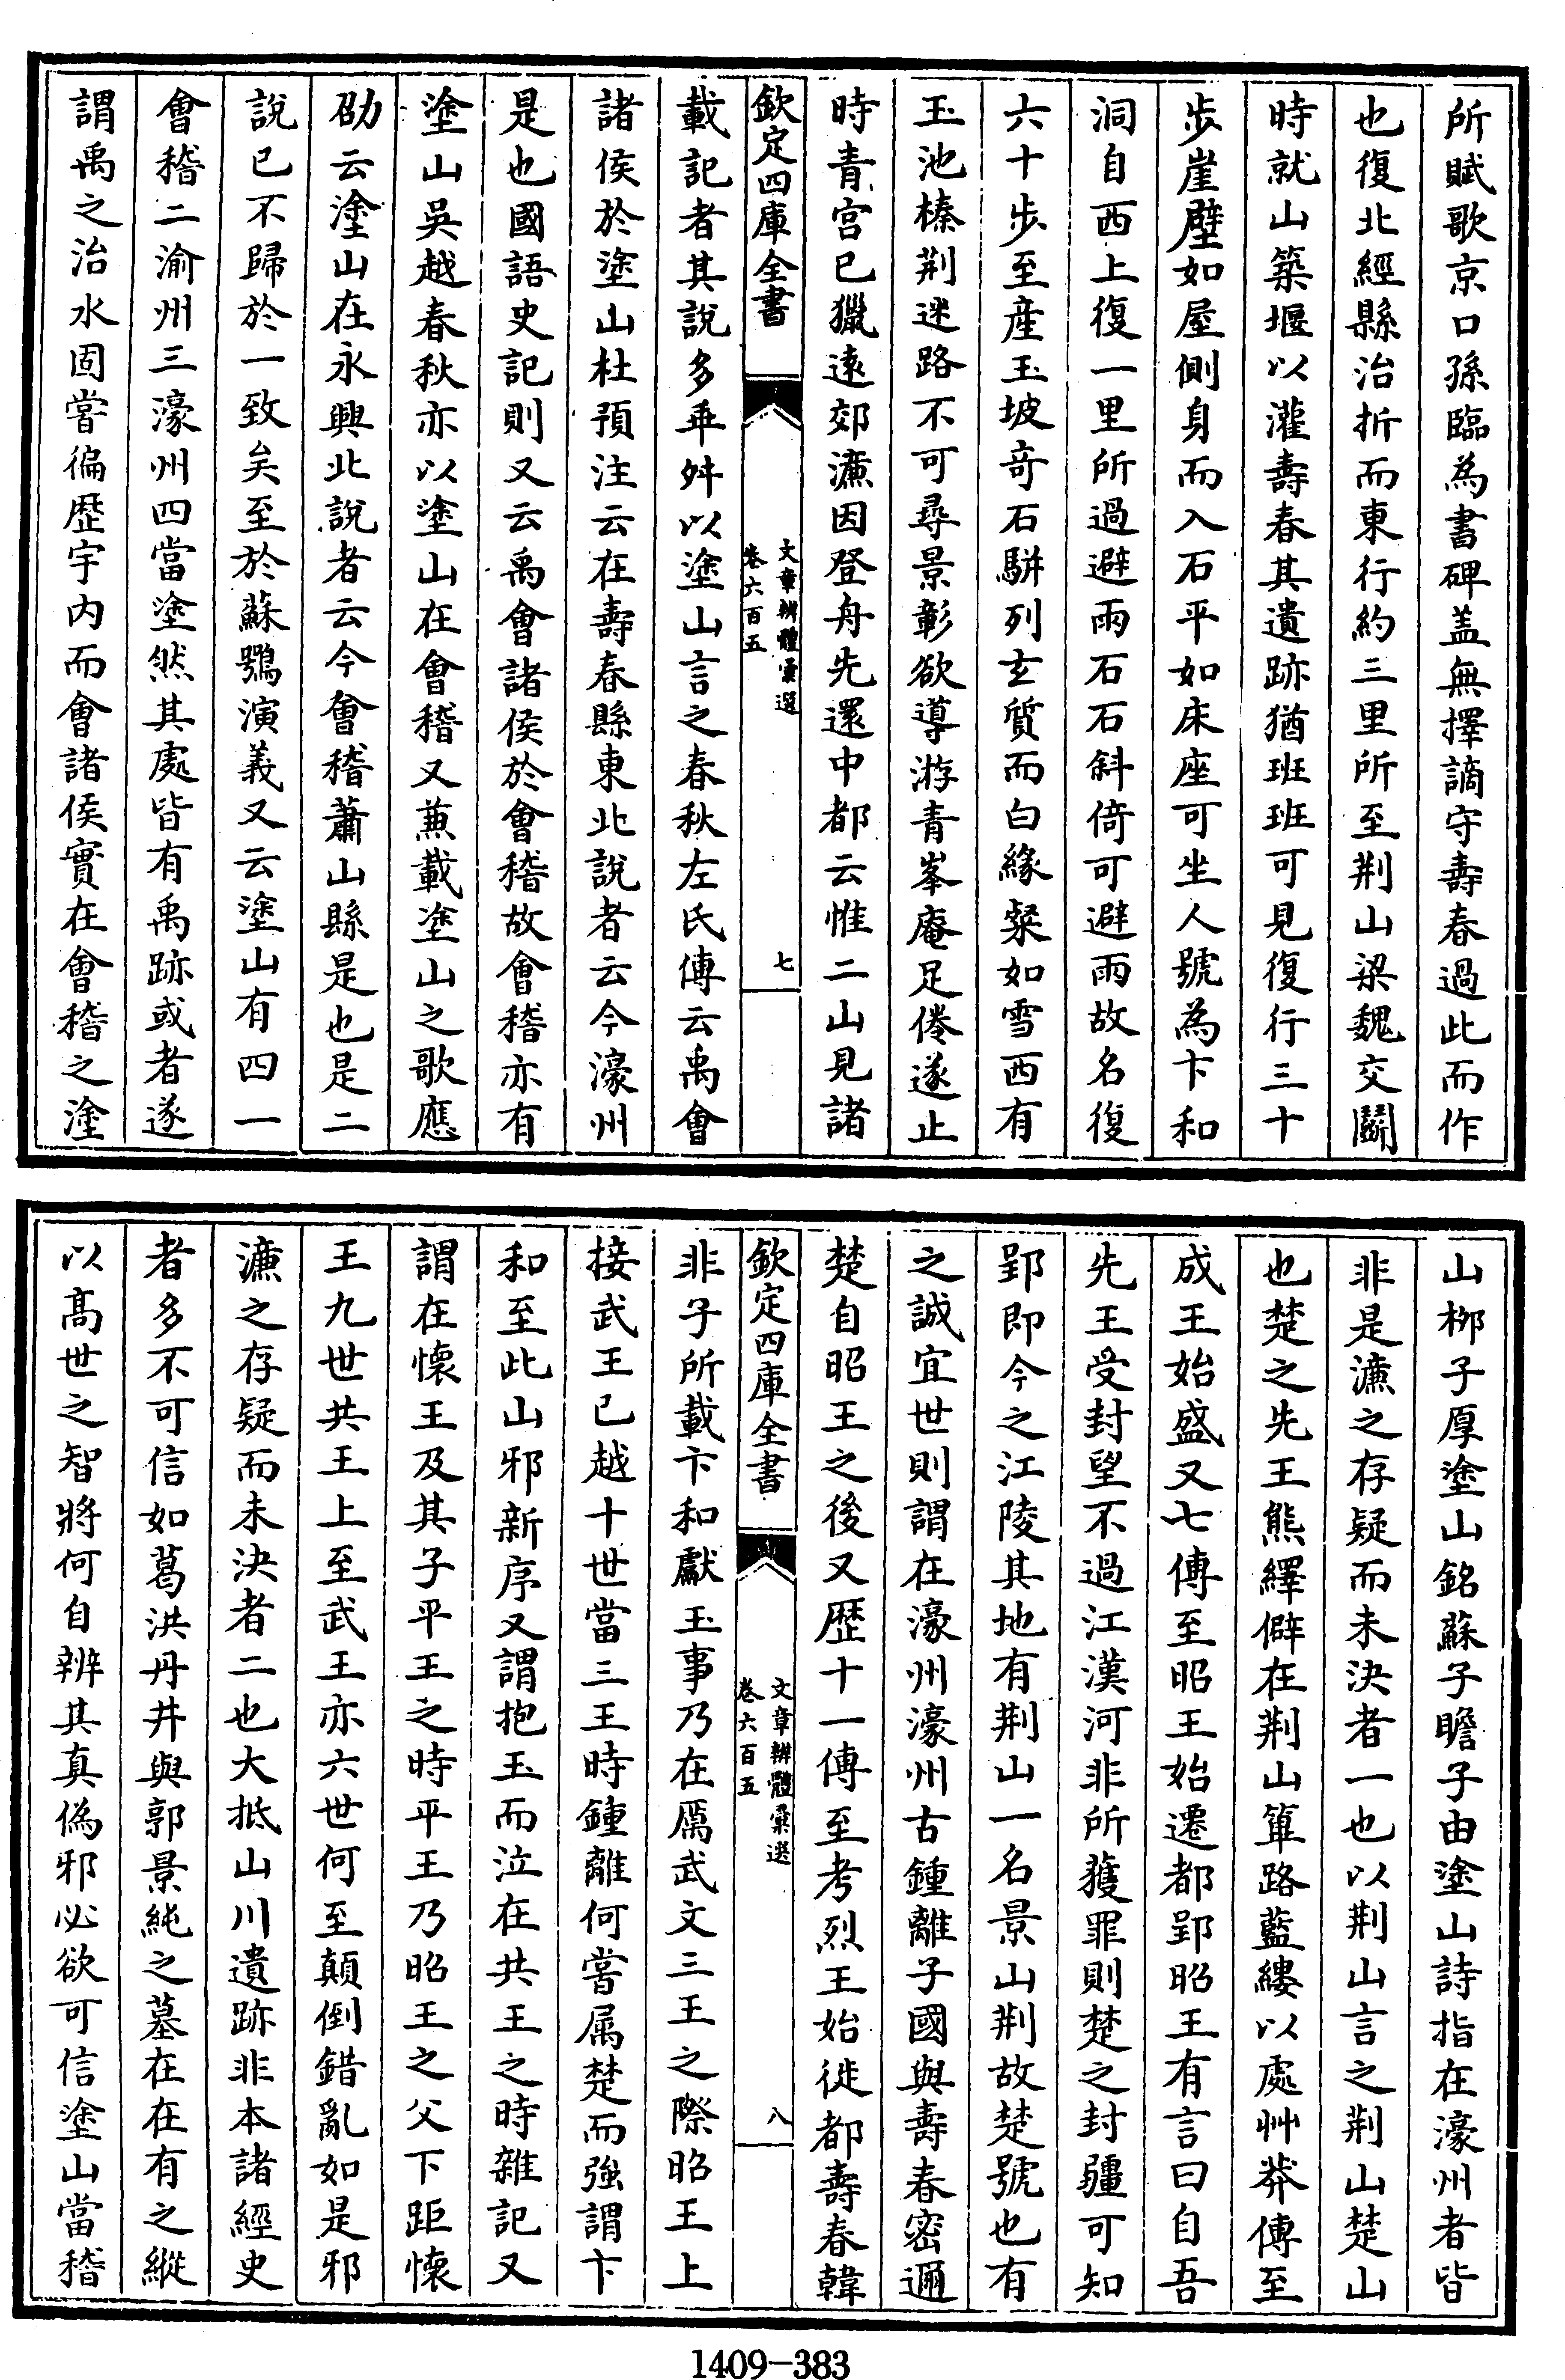 所賦歌京口孫臨為書碑盖無擇謫守壽春過此而作
也復北經縣治折而東行約三里所至荆山梁魏交鬭
時就山築堰以灌壽春其遺跡猶班班可見復行三十
步崖壁如屋側身而入石平如床座可坐人號為卞和
洞自西上復一里所過避雨石石斜倚可避雨故名復
六十步至産玉坡竒石駢列玄質而白緣粲如雪西有
玉池榛荆迷路不可尋景彰欲導游青峯庵足倦遂止
時青宫已獵遠郊濂因登舟先還中都云惟二山見諸
欽定四庫全書
文章辨體彙選
卷六百五
七
載記者其說多乖舛以塗山言之春秋左氏傳云禹會
諸侯於塗山杜預注云在壽春縣東北說者云今濠州
是也國語史記則又云禹會諸侯於會稽故會稽亦有
塗山吳越春秋亦以塗山在會稽又蒹載塗山之歌應
劭云塗山在永興北說者云今會稽蕭山縣是也是二
說已不歸於一致矣至於蘇鶚演義又云塗山有四一
會稽二渝州三濠州四當塗然其處皆有禹跡或者遂
謂禹之治水固嘗徧歴宇内而會諸侯實在會稽之塗
山栁子厚塗山銘蘇子瞻子由塗山詩指在濠州者皆
非是濂之存疑而未決者一也以荆山言之荆山楚山
也楚之先王熊繹僻在荆山篳路藍縷以處艸莽傳至
成王始盛又七傳至昭王始遷都郢昭王有言曰自吾
先王受封望不過江漢河非所獲罪則楚之封疆可知
郢即今之江陵其地有荆山一名景山荆故楚號也有
之誠宜世則謂在濠州濠州古鍾離子國與壽春密邇
楚自昭王之後又歴十一傳至考烈王始徙都壽春韓
欽定四庫全書
文章辨體彙選
卷六百五
八
非子所載卞和獻玉事乃在厲武文三王之際昭王上
接武王已越十世當三王時鍾離何嘗属楚而強謂卞
和至此山邪新序又謂抱玉而泣在共王之時雜記又
謂在懷王及其子平王之時平王乃昭王之父下距懷
王九世共王上至武王亦六世何至顛倒錯亂如是邪
濂之存疑而未決者二也大抵山川遺跡非本諸經史
者多不可信如葛洪丹井與郭景純之墓在在有之縱
以髙世之智將何自辨其真偽邪必欲可信塗山當稽
1409-383